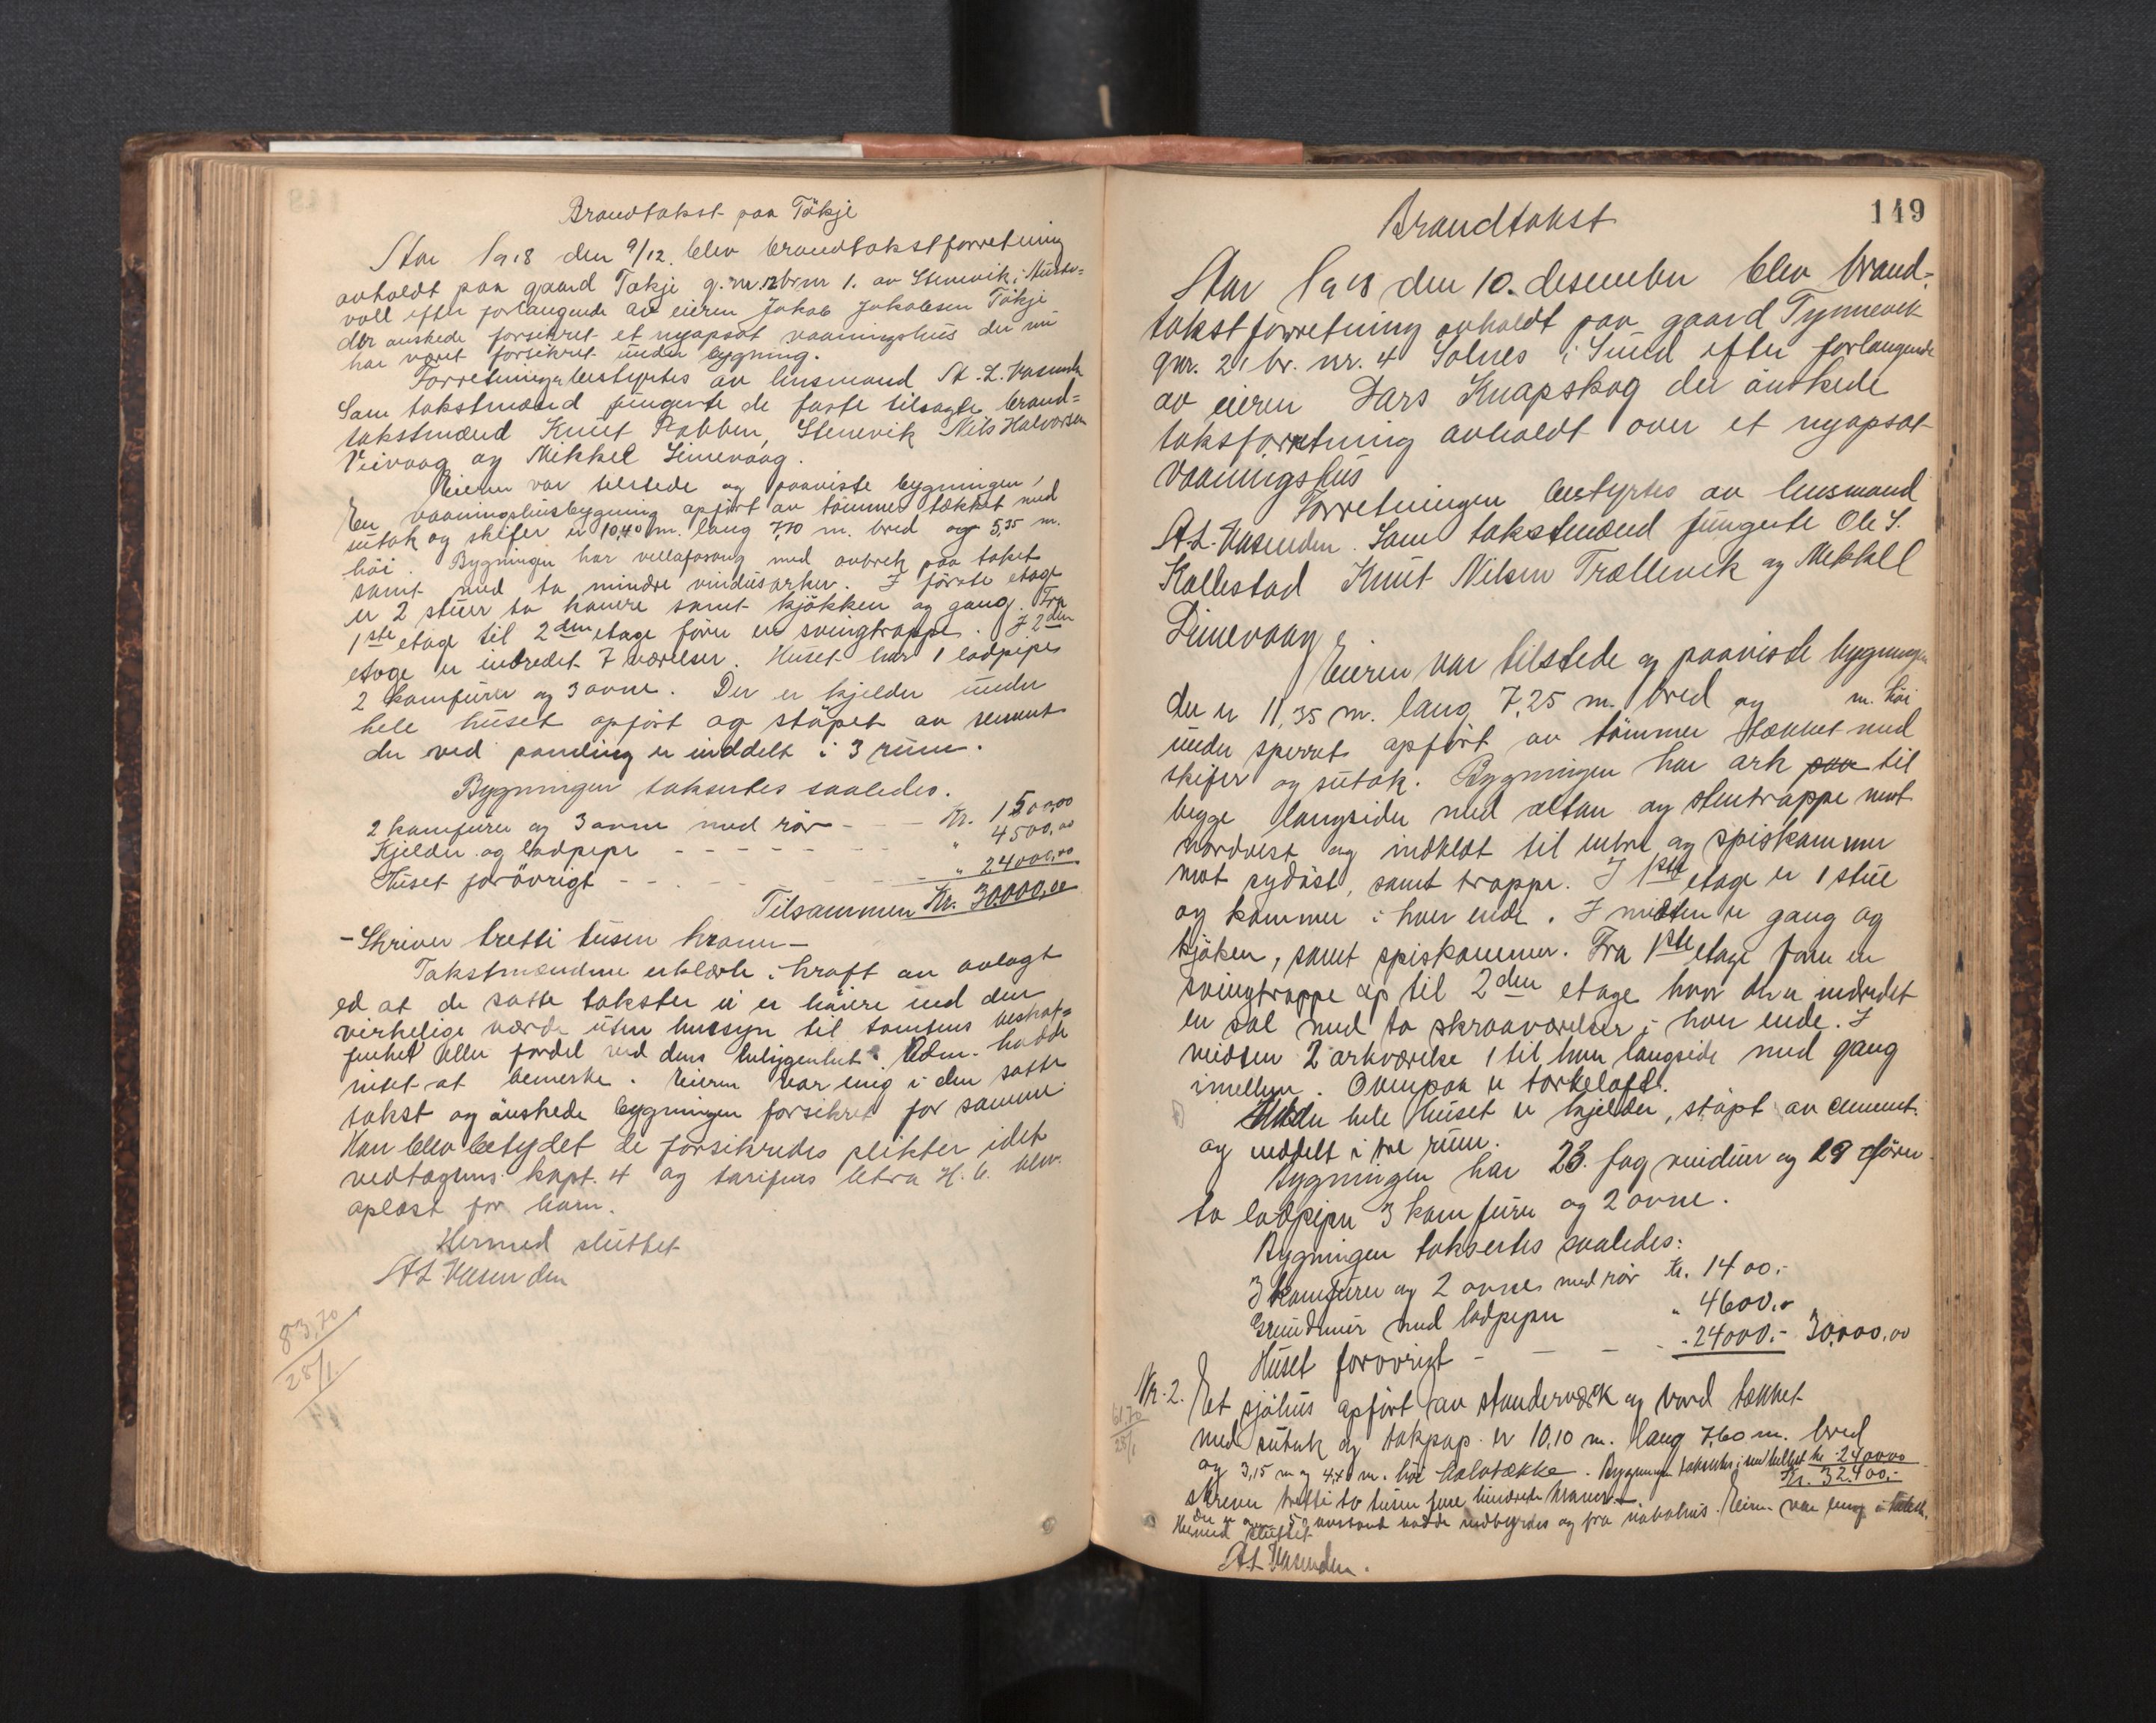 Brandtakst paa Tökje
Aar 1918 den 9/12. blev brandtakstforretning
avholdt paa gaard Tøkje g.nr. br nr 1. av Stenevik i Auste-
voll efter forlangende av eieren Jakob Jakobsen Tökje
der önskede forsikret et nyopsat vaaningshus der nu
har været forsikret under bygning.
Forretningen bestyrtes av lensmand A. L. Vasenden
Som takstmænd fungerte de faste tilsagte brand-
takstmænd Knut Rabben, Stenevik Nils Halvorsen
Veivaag og Mikkel Limevaag.
Eieren var tilstede og paaviste bygningen,
En vaaningshusbygning opfört av tömmer tækket med
sutak og skifer er 10,40 m. lang 7,70 m. bred og 5,35 m.
höi. Bygningen har villafasong med avbrek paa taket
samt med to mindre vindusarker. I förste etage
er 2 stuer to kamre samt kjökken og gang. Fra
1ste etage til 2den etage förer en svingtrappe. I 2den
etage er indredet 7 værelser. Huset har 1 ladpipe
2 komfurer og 3 ovne. Der er kjelder under
hele huset opfört og stöpet av sement
der ved panding er inddelt i 3 rum.
Bygningen taksertes saaledes.
2 komfurer og 3 ovne med rör - - - Kr. 1500,00
Kjelder og ladpipe - - - - - - - " 4500,00
Huset forövrigt - - - - - - " 24000,00
Tilsammen Kr. 30.000,00
- Skriver tretti tusen kroner -
Takstmændene erklærte i kraft av avlagt
ed at de satte takster ei er höiere end den
virkelige værde uten hensyn til tomtens beskaf-
fenhet eller fordel ved dens beliggenhet. Adm. hadde
intet at bemerke. Eieren var enig i den satte
takst og önskede bygningen forsikret for samme
Han blev betydet de forsikredes plikter idet
vedtægtens kapt. 4 og tarifens litra H. b. blev
oplæst for ham.
Hermed sluttet
A L Vasenden
83,70
28/1.
149
Brandtakst
Aar 1918 den 10. desember blev brand-
takstforretning avholdt paa gaard Tynnevik
gnr. 21 br. nr. 4 Solnes i Sund efter forlangende
av eieren Lars Knapskog der önskede
taksforretning avholdt over et nyopsat
vaaningshus
Forretningen bestyrtes av lensmand
A.L. Vasenden. Som takstmænd fungerte Ole S.
Kallestad Knut Nilsen Trællevik og Mikkel
Limevaag.
Eieren var tilstede og paaviste bygningen
der er 11,35 m. lang 7,25 m. bred og m. höi
under sperret opfört av tömmer tækket med
skifer og sutak. Bygningen har ark paa til
begge langsider med altan og stentrappe mot
nordvest og indblot til entre og spiskammer
mot sydöst, samt trappe. I 1ste etage er 1 stue
og kammer i hver ende. I midten er gang og
kjöken, samt spiskammer. Fra 1ste etage förer en
svingtrappe op til 2den etage hvor der er indredet
en sal med to skraaværelser i hver ende. I
midten 2 arkværelse 1 til hver langside med gang
imellem. Ovenpaa er törkeloft.
Under hele huset er kjelder, stöpt av cement
og inddelt i tre rum.
Bygningen har 23. fag vinduer og 19 dörer.
to ladpiper 3 komfurer og 2 ovne.
Bygningen taksertes saaledes:
3 komfurer og 2 ovnes med rör Kr. 1400.-
Grundmur med ladpiper " 4600,-
Huset forøvrigt - - - - 24000.- 30,000,00
Nr. 2. Et sjöhus opfört av stenderværk og bord tækket
61,70
28/1
med sutak og takpap er 10,10 m. lang 7,60 m. bred
og 3,15 m og 4,40 m. höi halvtække. Bygningen taksertes i sin helhet kr. 2400,00
Kr. 32.400.-
skriver tretti to tusen fire hundrede kroner.
Der er over 5 avstand indbyrdes og fra nabohus. Eieren var enig i takst.
Hermed sluttet
A L Vasenden.